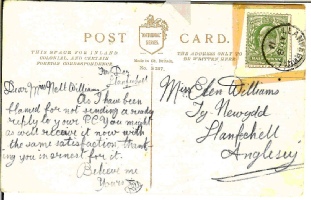 POST CARD.
THIS SPACE FOR INLAND
COLONIAL, AND CERTAIN
FOREIGN CORRESPONDENCE.
THE ADDRESS ONLY TO
BE WRITTEN HERE.
Dear Miss Nell Williams
As I have been
blamed for not sending a ready
reply to your P.C. you might
as well receive it now with
the same satisfaction, thank-
ing you in ernest for it.
Believe me
Yours
Miss Ellen Williams
Ty Newydd
Llanfechell
Anglesey